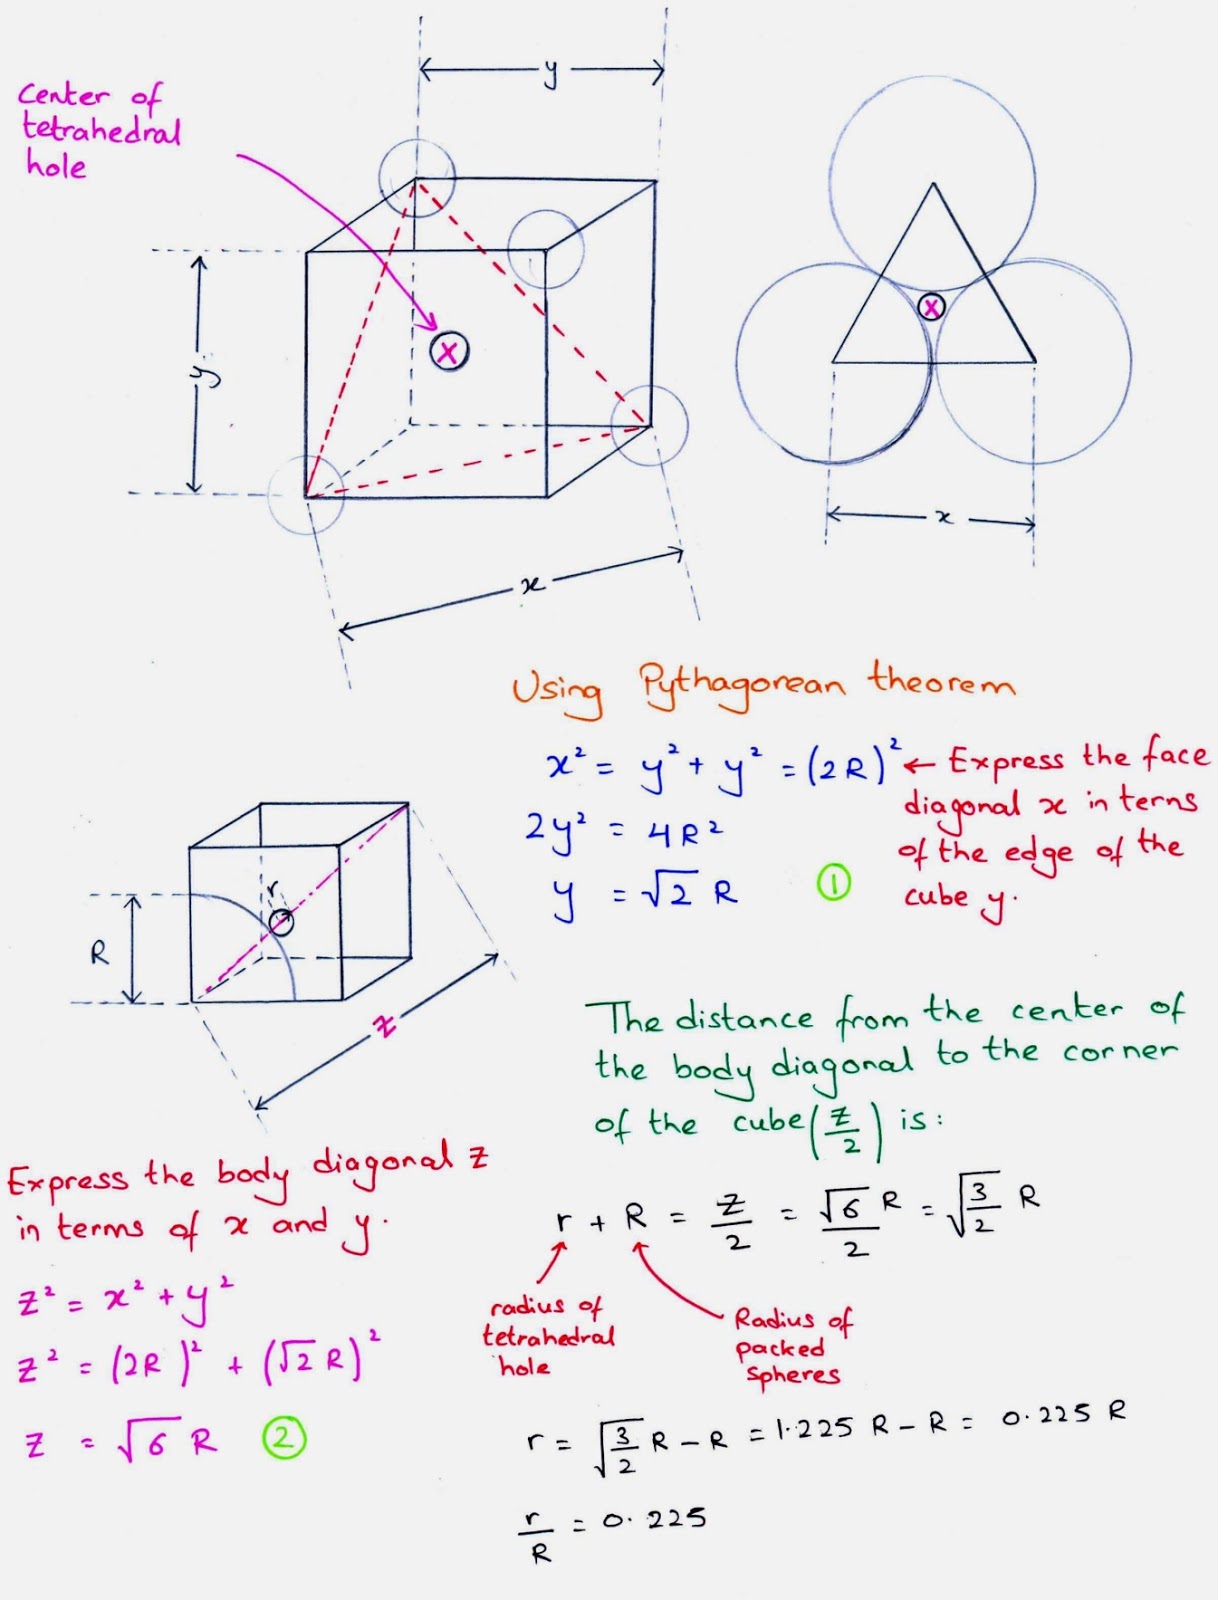 y
Center of
tetrahedral
hole
x
x
y
x
x
Using Pythagorean theorem
x² = y² + y² = (2R)² ← Express the face
diagonal x in terns
of the edge of the
cube y.
2y² = 4R²
y = √2 R ①
r
R
z
The distance from the center of
the body diagonal to the corner
of the cube (z/2) is:
Express the body diagonal z
in terms of x and y.
z² = x² + y²
z² = (2R)² + (√2 R)²
z = √6 R ②
r + R = z/2 = √6 R/2 = √(3/2) R
radius of
tetrahedral
hole
Radius of
packed
spheres
r = √(3/2) R – R = 1.225 R – R = 0.225 R
r/R = 0.225